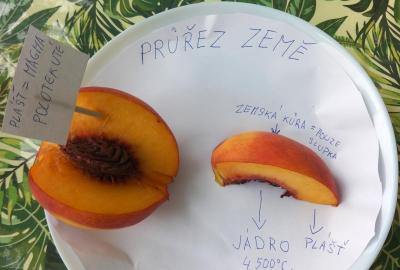 PRŮŘEZ ZEMĚ
PLÁŠŤ = MAGMA
POLOTEKUTÉ
ZEMSKÁ KŮRA = POUZE
SLUPKA
JÁDRO
4 500°C
PLÁŠŤ